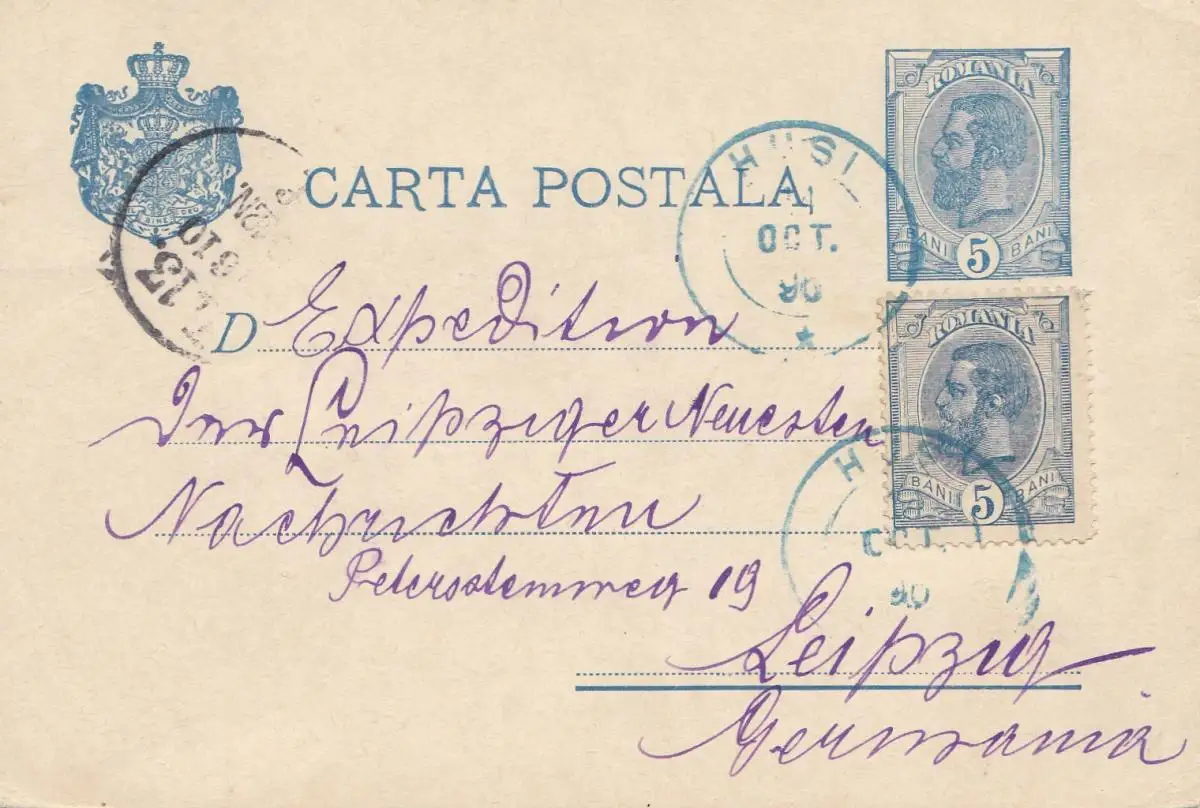 ROMANIA
BANI 5 BANI
CARTA POSTALA
HUSI
OCT.
13.
D Expedition
der Leipziger Neuesten
Nachrichten
Peterssteinweg 19
Leipzig
Germania
ROMANIA
BANI 5 BANI